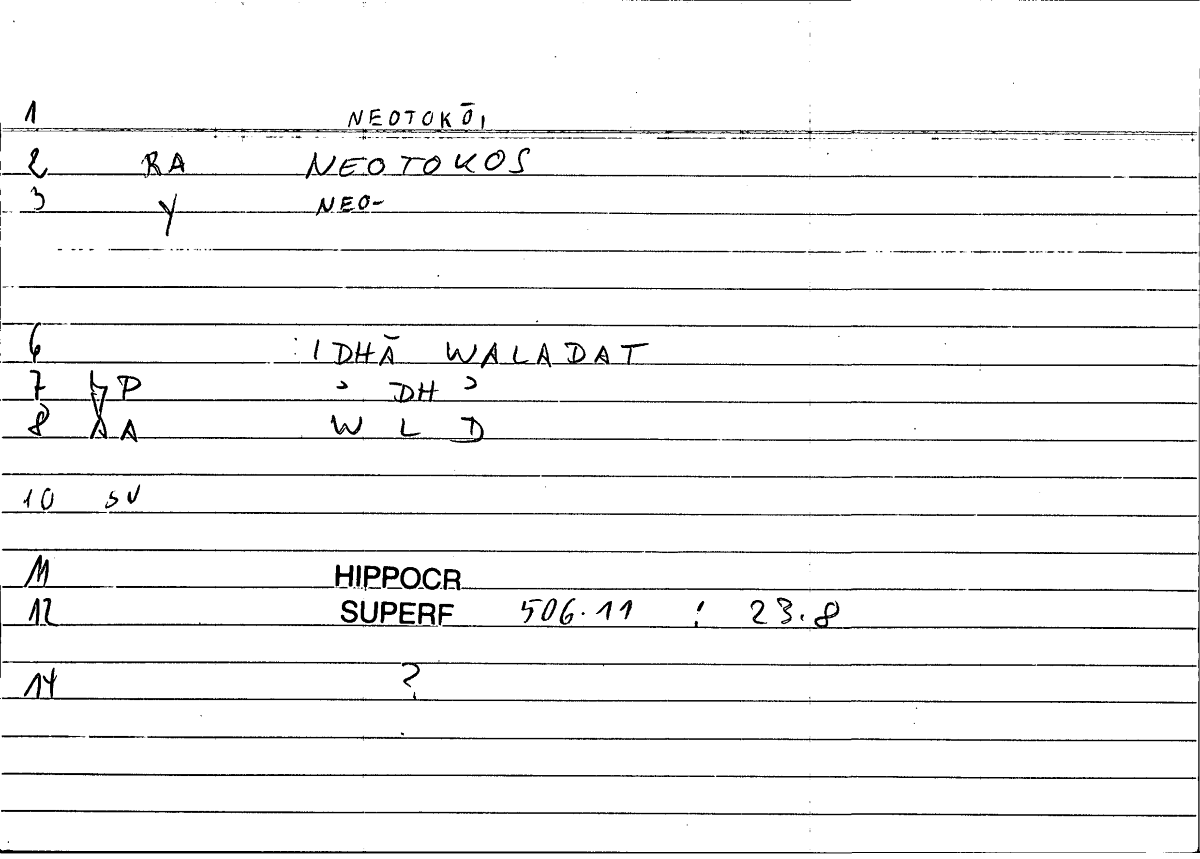 1 NEOTOKŌI
2 RA NEOTOKOS
3 Y NEO-
6 : IDHĀ WALADAT
7 P ʾ DH ʾ
8 A W L D
10 SV
11 HIPPOCR
12 SUPERF 506.11 : 23.8
14 ?